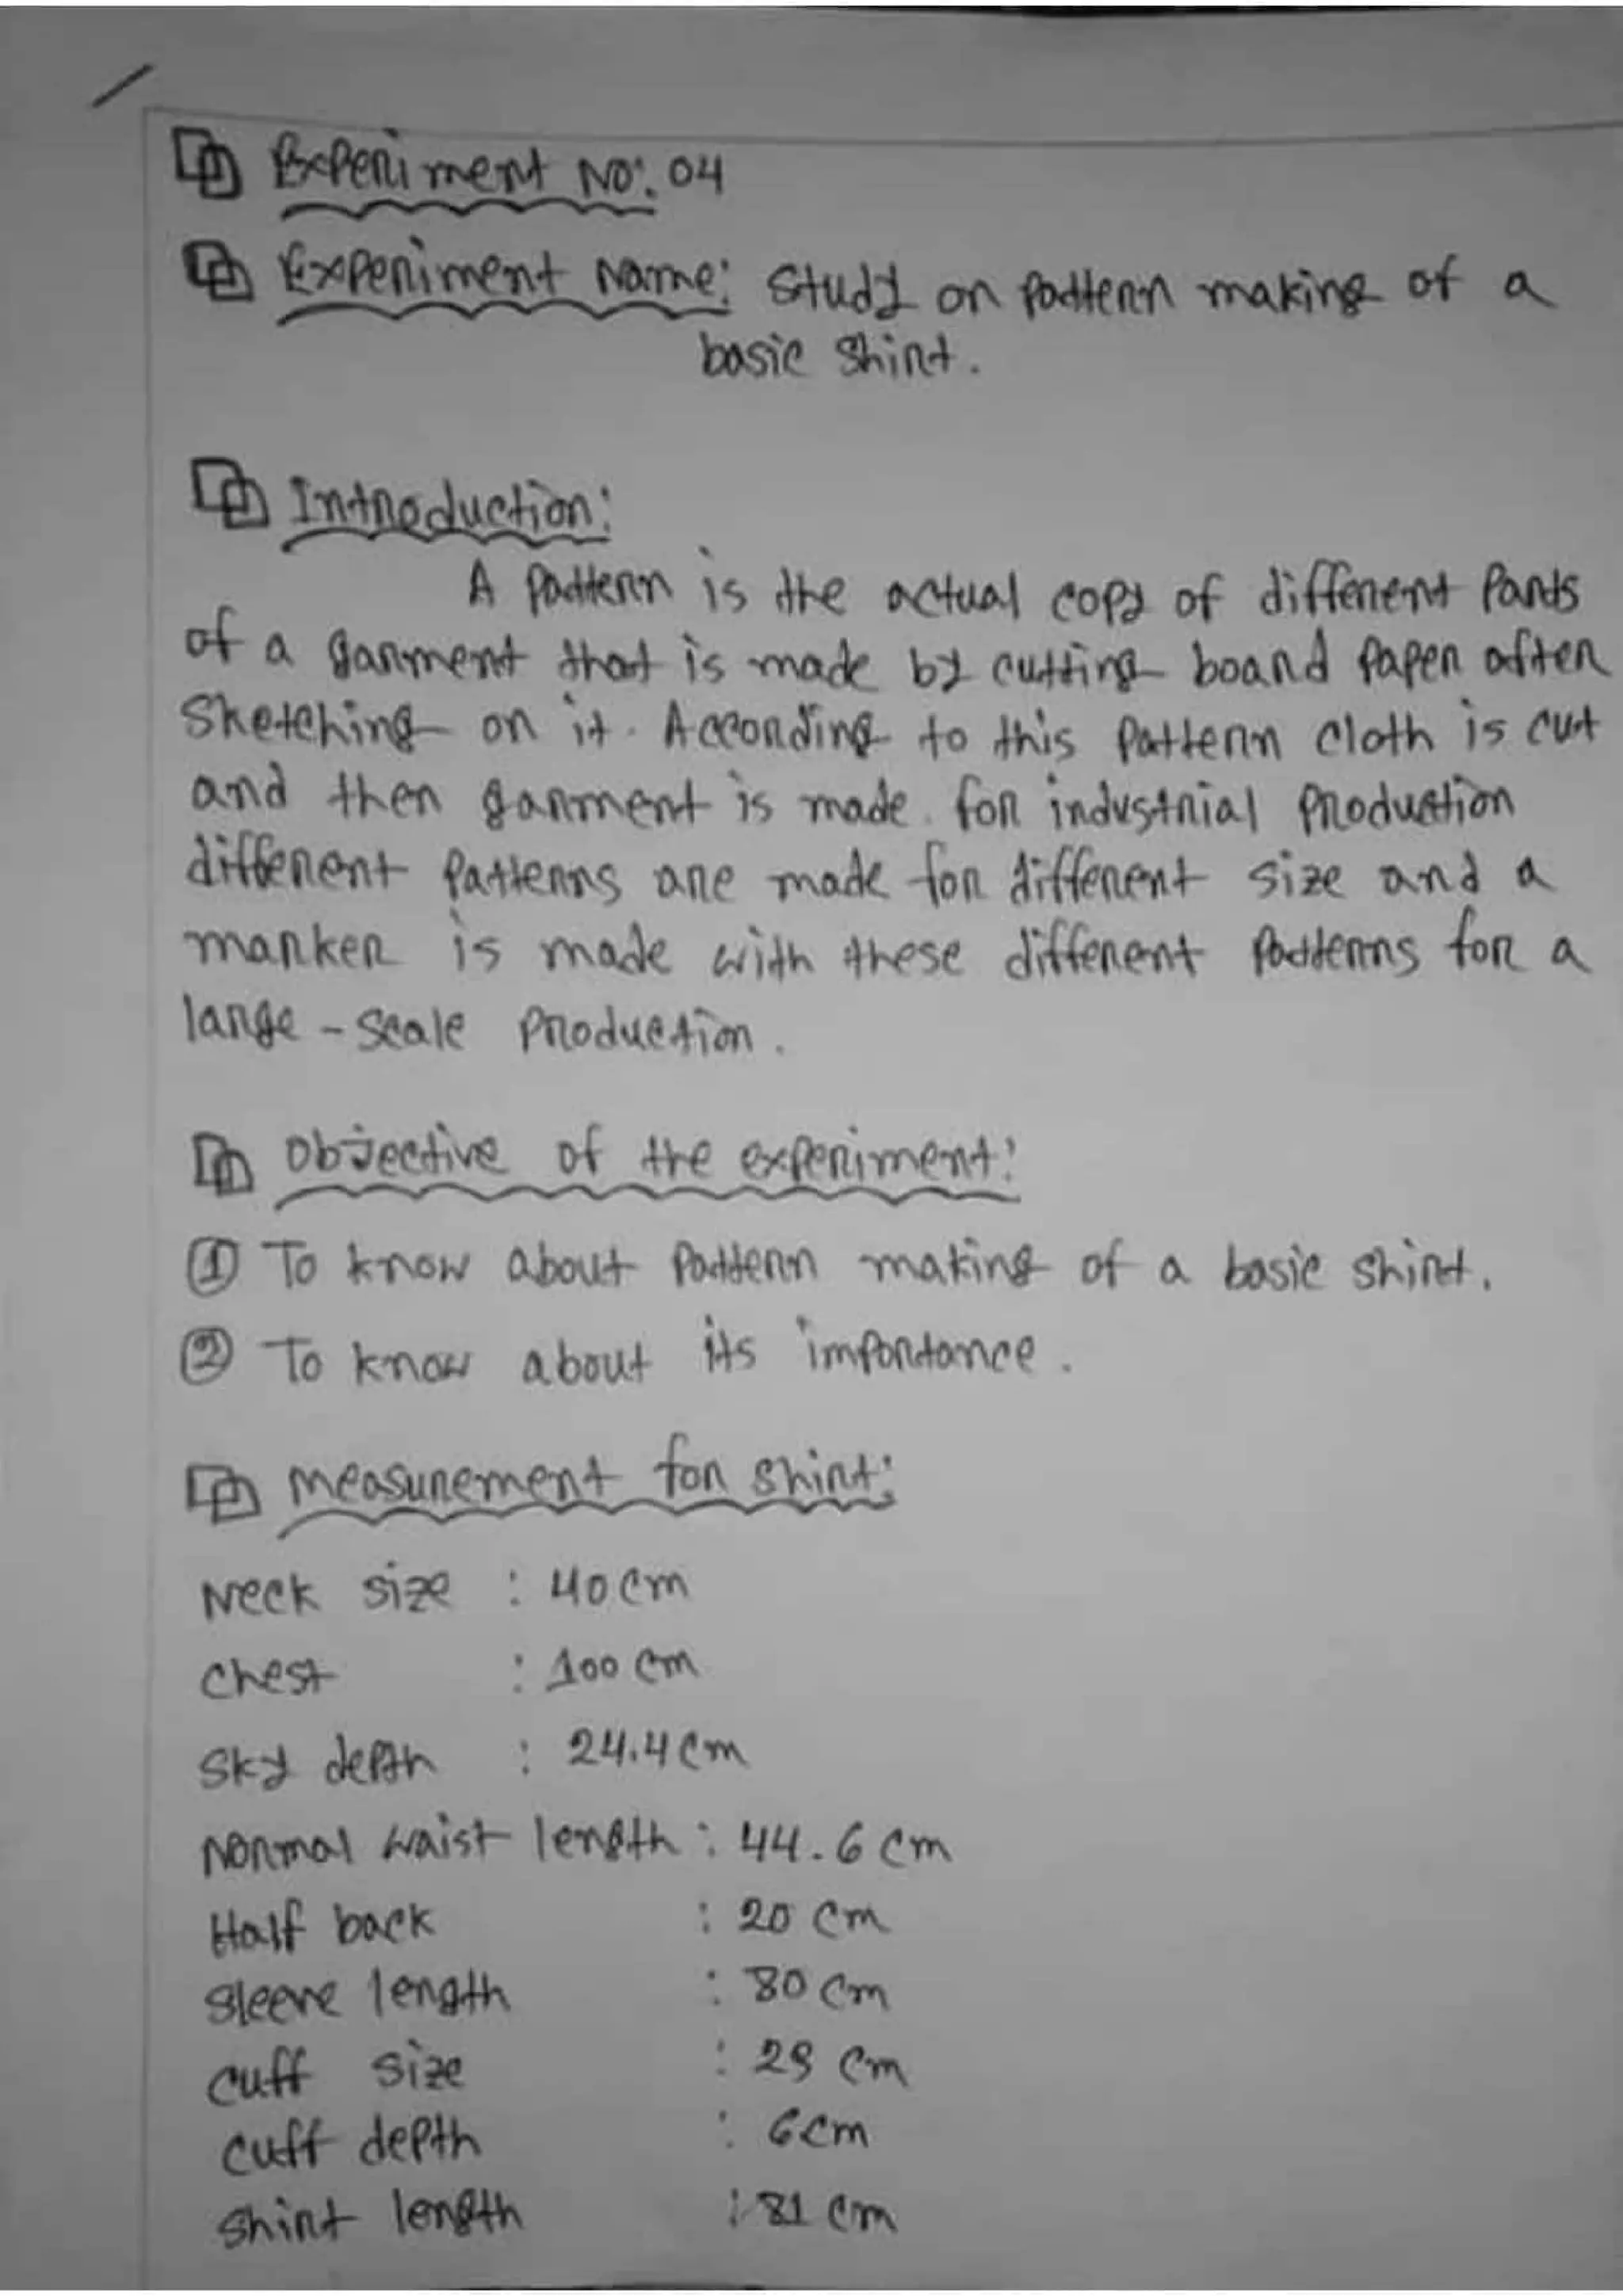 Experiment No: 04
Experiment Name: Study on Pattern making of a
basic Shirt.
Introduction:
A Pattern is the actual copy of different Parts
of a garment that is made by cutting board Paper after
Sketching on it. According to this Pattern cloth is cut
and then garment is made. for industrial Production
different Patterns are made for different size and a
marker is made with these different Patterns for a
large-scale Production.
Objective of the experiment:
① To know about Pattern making of a basic shirt.
② To know about its importance.
Measurement for shirt:
Neck size : 40 cm
Chest : 100 cm
Sky depth : 24.4 cm
Normal waist length : 44.6 cm
Half back : 20 cm
Sleeve length : 80 cm
Cuff size : cm
Cuff depth : 6 cm
Shirt length : 81 cm